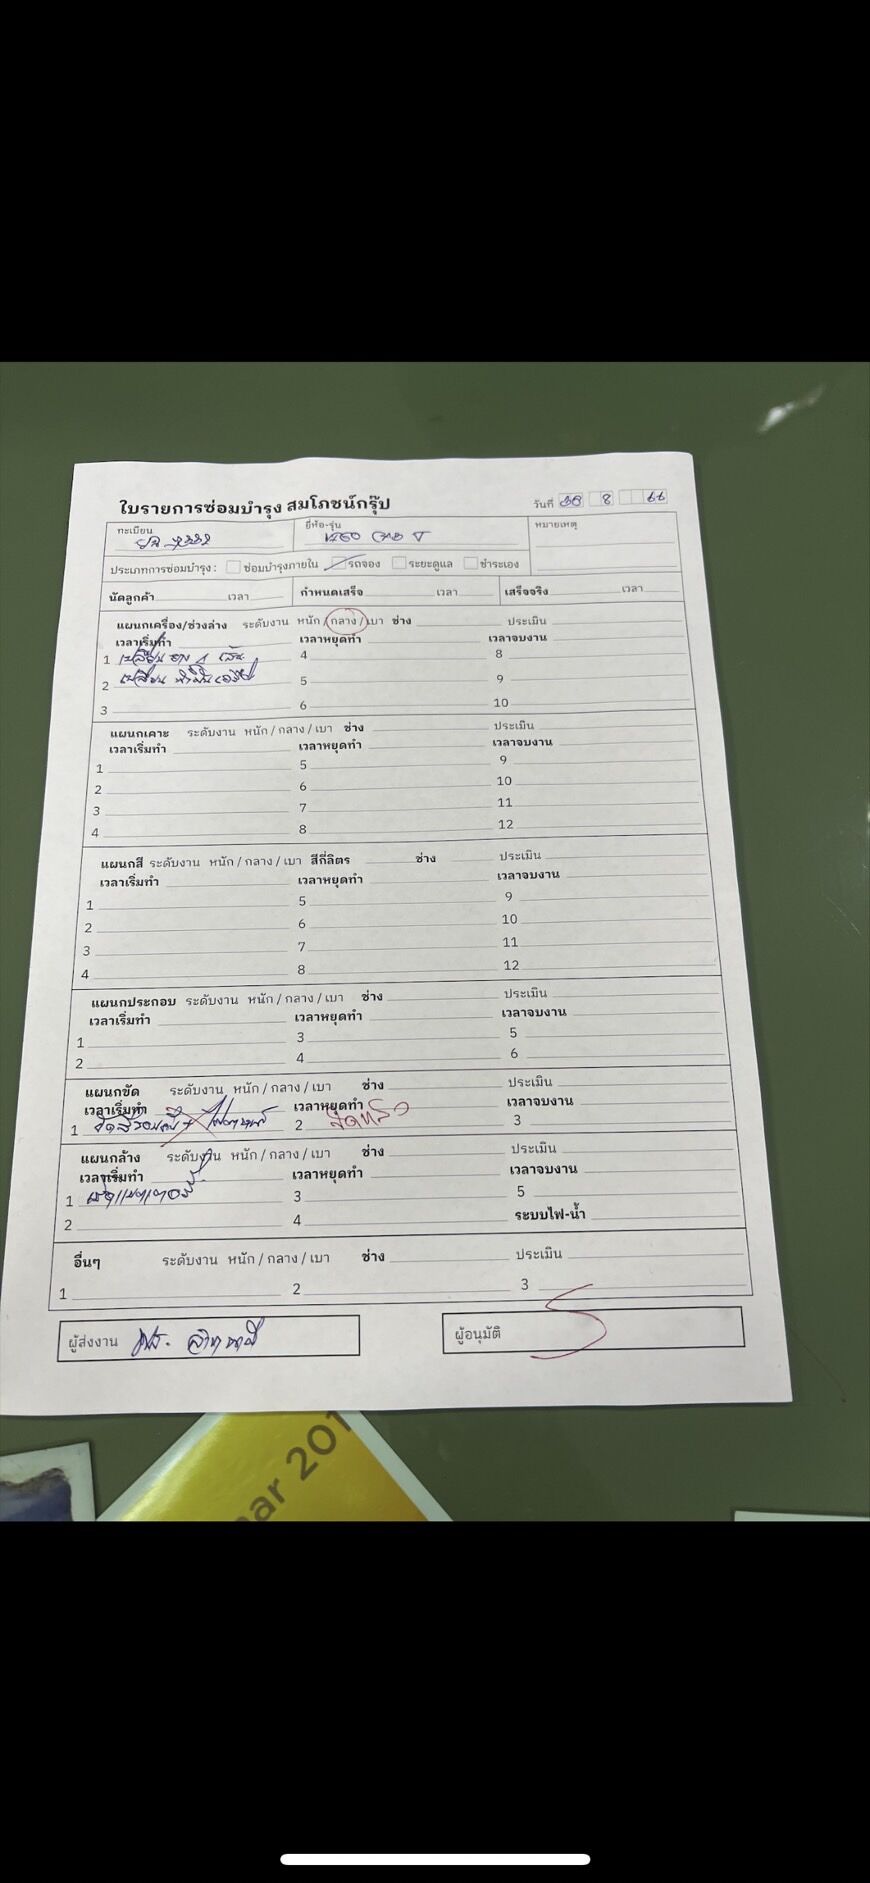 ใบรายการซ่อมบำรุง สมโภชน์กรุ๊ป
วันที่ 8 66
ทะเบียน
ยี่ห้อ-รุ่น
หมายเหตุ
ประเภทการซ่อมบำรุง : ซ่อมบำรุงภายใน รถจอง ระยะดูแล ชำระเอง
นัดลูกค้า เวลา กำหนดเสร็จ เวลา เสร็จจริง เวลา
แผนกเครื่อง/ช่วงล่าง ระดับงาน หนัก / กลาง / เบา ช่าง ประเมิน
เวลาเริ่มทำ เวลาหยุดทำ เวลาจบงาน
1 เปลี่ยน ยาง 4 เส้น 4 8
2 เปลี่ยน 5 9
3 6 10
แผนกเคาะ ระดับงาน หนัก / กลาง / เบา ช่าง ประเมิน
เวลาเริ่มทำ เวลาหยุดทำ เวลาจบงาน
1 5 9
2 6 10
3 7 11
4 8 12
แผนกสี ระดับงาน หนัก / กลาง / เบา สีกี่ลิตร ช่าง ประเมิน
เวลาเริ่มทำ เวลาหยุดทำ เวลาจบงาน
1 5 9
2 6 10
3 7 11
4 8 12
แผนกประกอบ ระดับงาน หนัก / กลาง / เบา ช่าง ประเมิน
เวลาเริ่มทำ เวลาหยุดทำ เวลาจบงาน
1 3 5
2 4 6
แผนกขัด ระดับงาน หนัก / กลาง / เบา ช่าง ประเมิน
เวลาเริ่มทำ เวลาหยุดทำ เวลาจบงาน
1 2 3
แผนกล้าง ระดับงาน หนัก / กลาง / เบา ช่าง ประเมิน
เวลาเริ่มทำ เวลาหยุดทำ เวลาจบงาน
1 3 5
2 4 ระบบไฟ-น้ำ
อื่นๆ ระดับงาน หนัก / กลาง / เบา ช่าง ประเมิน
1 2 3
ผู้ส่งงาน
ผู้อนุมัติ
mar 201